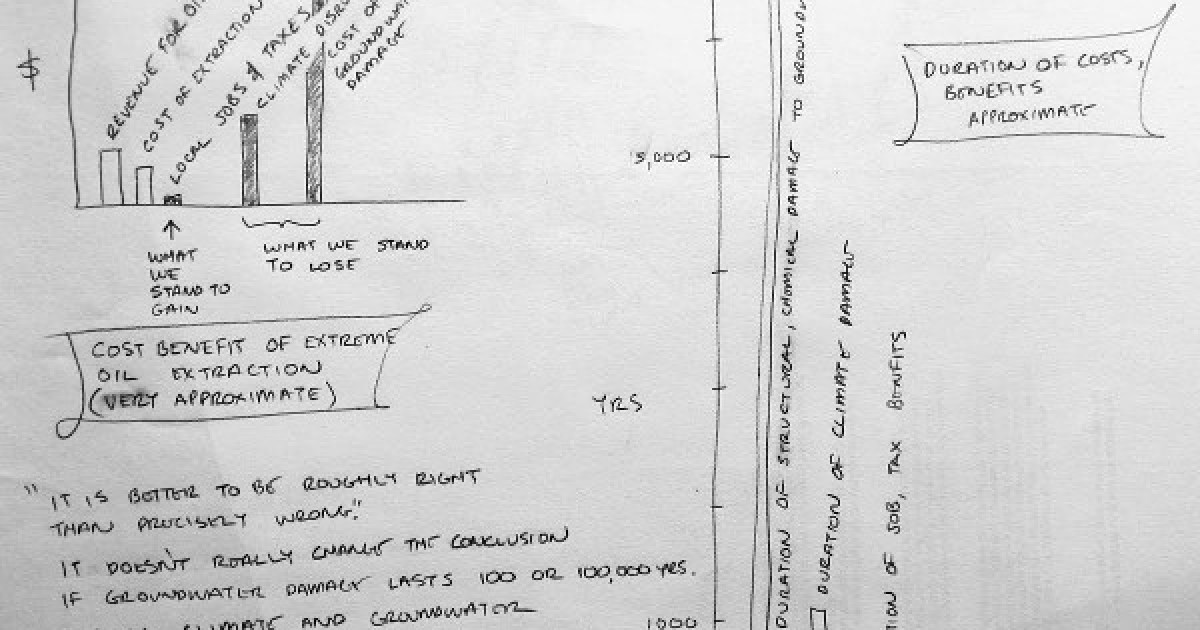 $
REVENUE FOR
COST OF EXTRACTION
LOCAL JOBS & TAXES
CLIMATE
COST OF
GROUNDWATER
DAMAGE
WHAT
WE
STAND TO
GAIN
WHAT WE STAND
TO LOSE
COST BENEFIT OF EXTREME
OIL EXTRACTION
(VERY APPROXIMATE)
"IT IS BETTER TO BE ROUGHLY RIGHT
THAN PRECISELY WRONG."
IT DOESN'T REALLY CHANGE THE CONCLUSION
IF GROUNDWATER DAMAGE LASTS 100 OR 100,000 YRS.
CLIMATE AND GROUNDWATER
YRS
5,000
1000
DURATION OF STRUCTURAL, CHEMICAL DAMAGE TO
DURATION OF CLIMATE DAMAGE
OF JOB, TAX BENEFITS
DURATION OF COSTS,
BENEFITS
APPROXIMATE